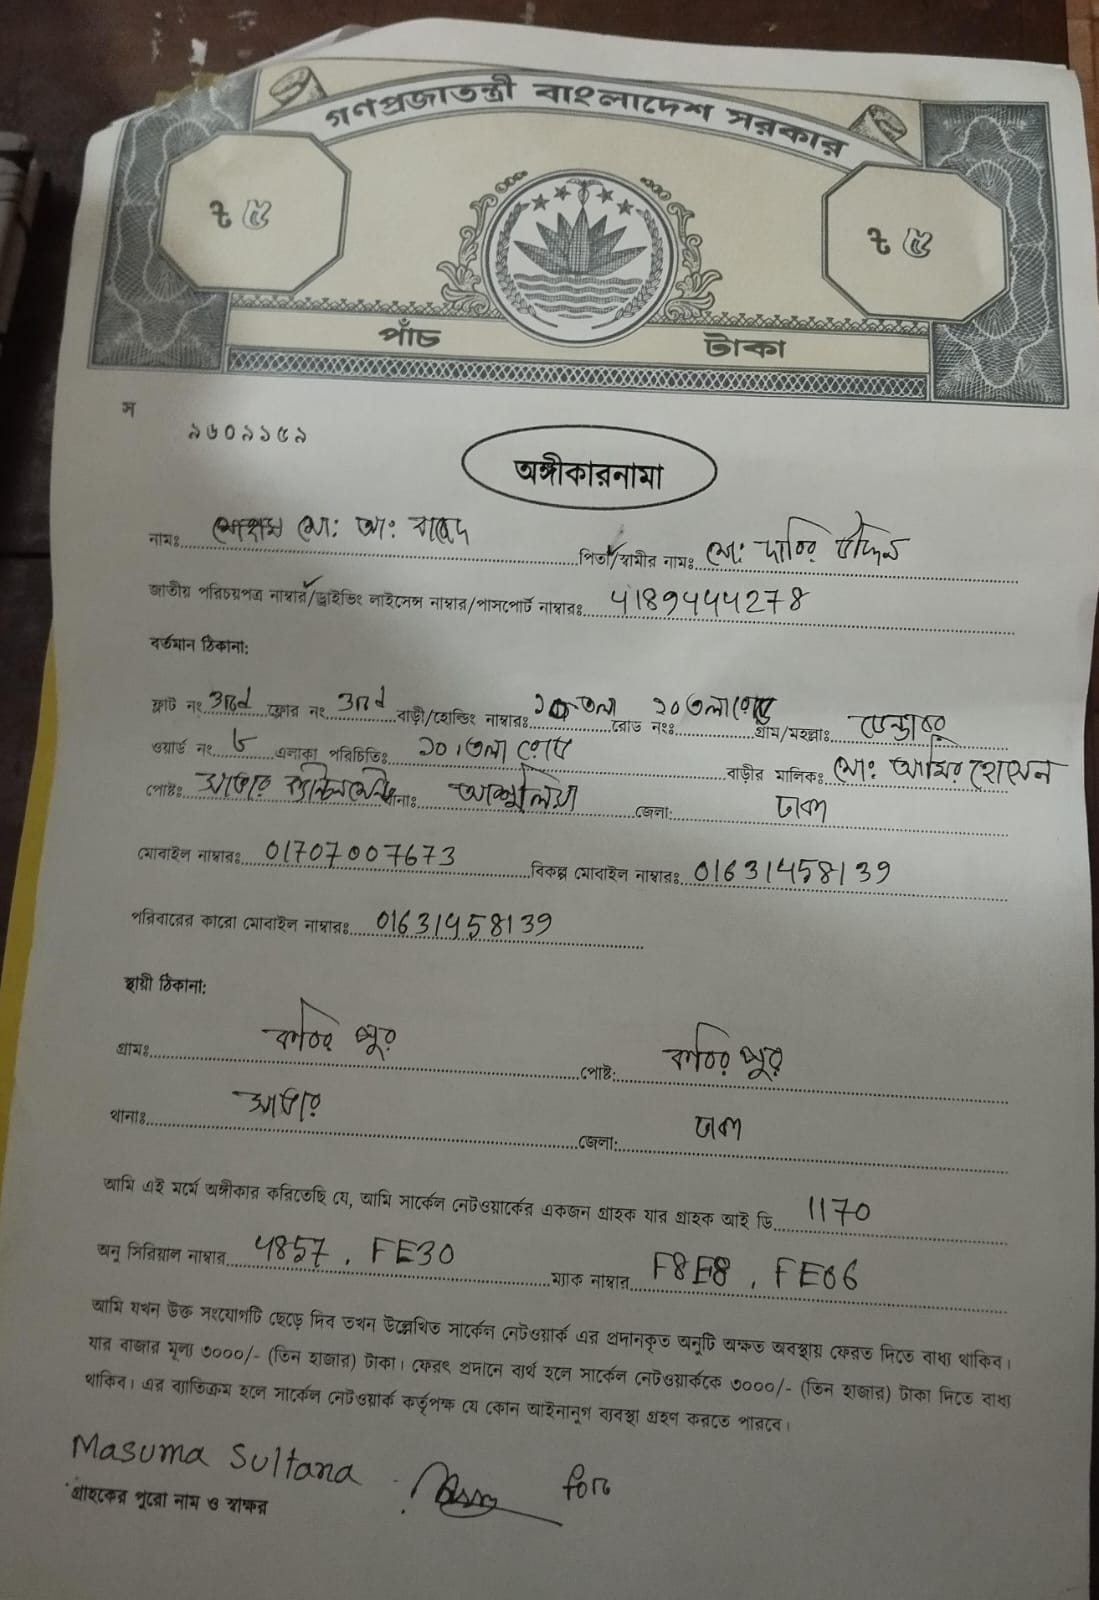 গণপ্রজাতন্ত্রী বাংলাদেশ সরকার
৳ ৫ ৳ ৫
পাঁচ টাকা
স
৯৬০৯১৫৯
অঙ্গীকারনামা
নামঃ মোঃ আঃ পিতা/স্বামীর নামঃ মোঃ উদ্দিন
জাতীয় পরিচয়পত্র নাম্বার/ড্রাইভিং লাইসেন্স নাম্বার/পাসপোর্ট নাম্বারঃ 4189444278
বর্তমান ঠিকানা:
ফ্লাট নং 3rd ফ্লোর নং 3rd বাড়ী/হোল্ডিং নাম্বারঃ ১০তলা রোড নংঃ ১০তলা রোড গ্রাম/মহল্লাঃ ডেন্ডাবর
ওয়ার্ড নং ৬ এলাকা পরিচিতিঃ ১০তলা রোড বাড়ীর মালিকঃ মোঃ আমির হোসেন
পোষ্টঃ সাভার ক্যান্টনমেন্ট থানাঃ আশুলিয়া জেলা: ঢাকা
মোবাইল নাম্বারঃ 01707007673 বিকল্প মোবাইল নাম্বারঃ 01631458139
পরিবারের কারো মোবাইল নাম্বারঃ 01631458139
স্থায়ী ঠিকানা:
গ্রামঃ কবির পুর পোষ্ট: কবির পুর
থানাঃ সাভার জেলা: ঢাকা
আমি এই মর্মে অঙ্গীকার করিতেছি যে, আমি সার্কেল নেটওয়ার্কের একজন গ্রাহক যার গ্রাহক আই ডি 1170
অনু সিরিয়াল নাম্বার 4857, FE30 ম্যাক নাম্বার F8E8, FE06
আমি যখন উক্ত সংযোগটি ছেড়ে দিব তখন উল্লেখিত সার্কেল নেটওয়ার্ক এর প্রদানকৃত অনুটি অক্ষত অবস্থায় ফেরত দিতে বাধ্য থাকিব।
যার বাজার মূল্য ৩০০০/- (তিন হাজার) টাকা। ফেরৎ প্রদানে ব্যর্থ হলে সার্কেল নেটওয়ার্ককে ৩০০০/- (তিন হাজার) টাকা দিতে বাধ্য
থাকিব। এর ব্যাতিক্রম হলে সার্কেল নেটওয়ার্ক কর্তৃপক্ষ যে কোন আইনানুগ ব্যবস্থা গ্রহণ করতে পারবে।
Masuma Sultana for
গ্রাহকের পুরো নাম ও স্বাক্ষর